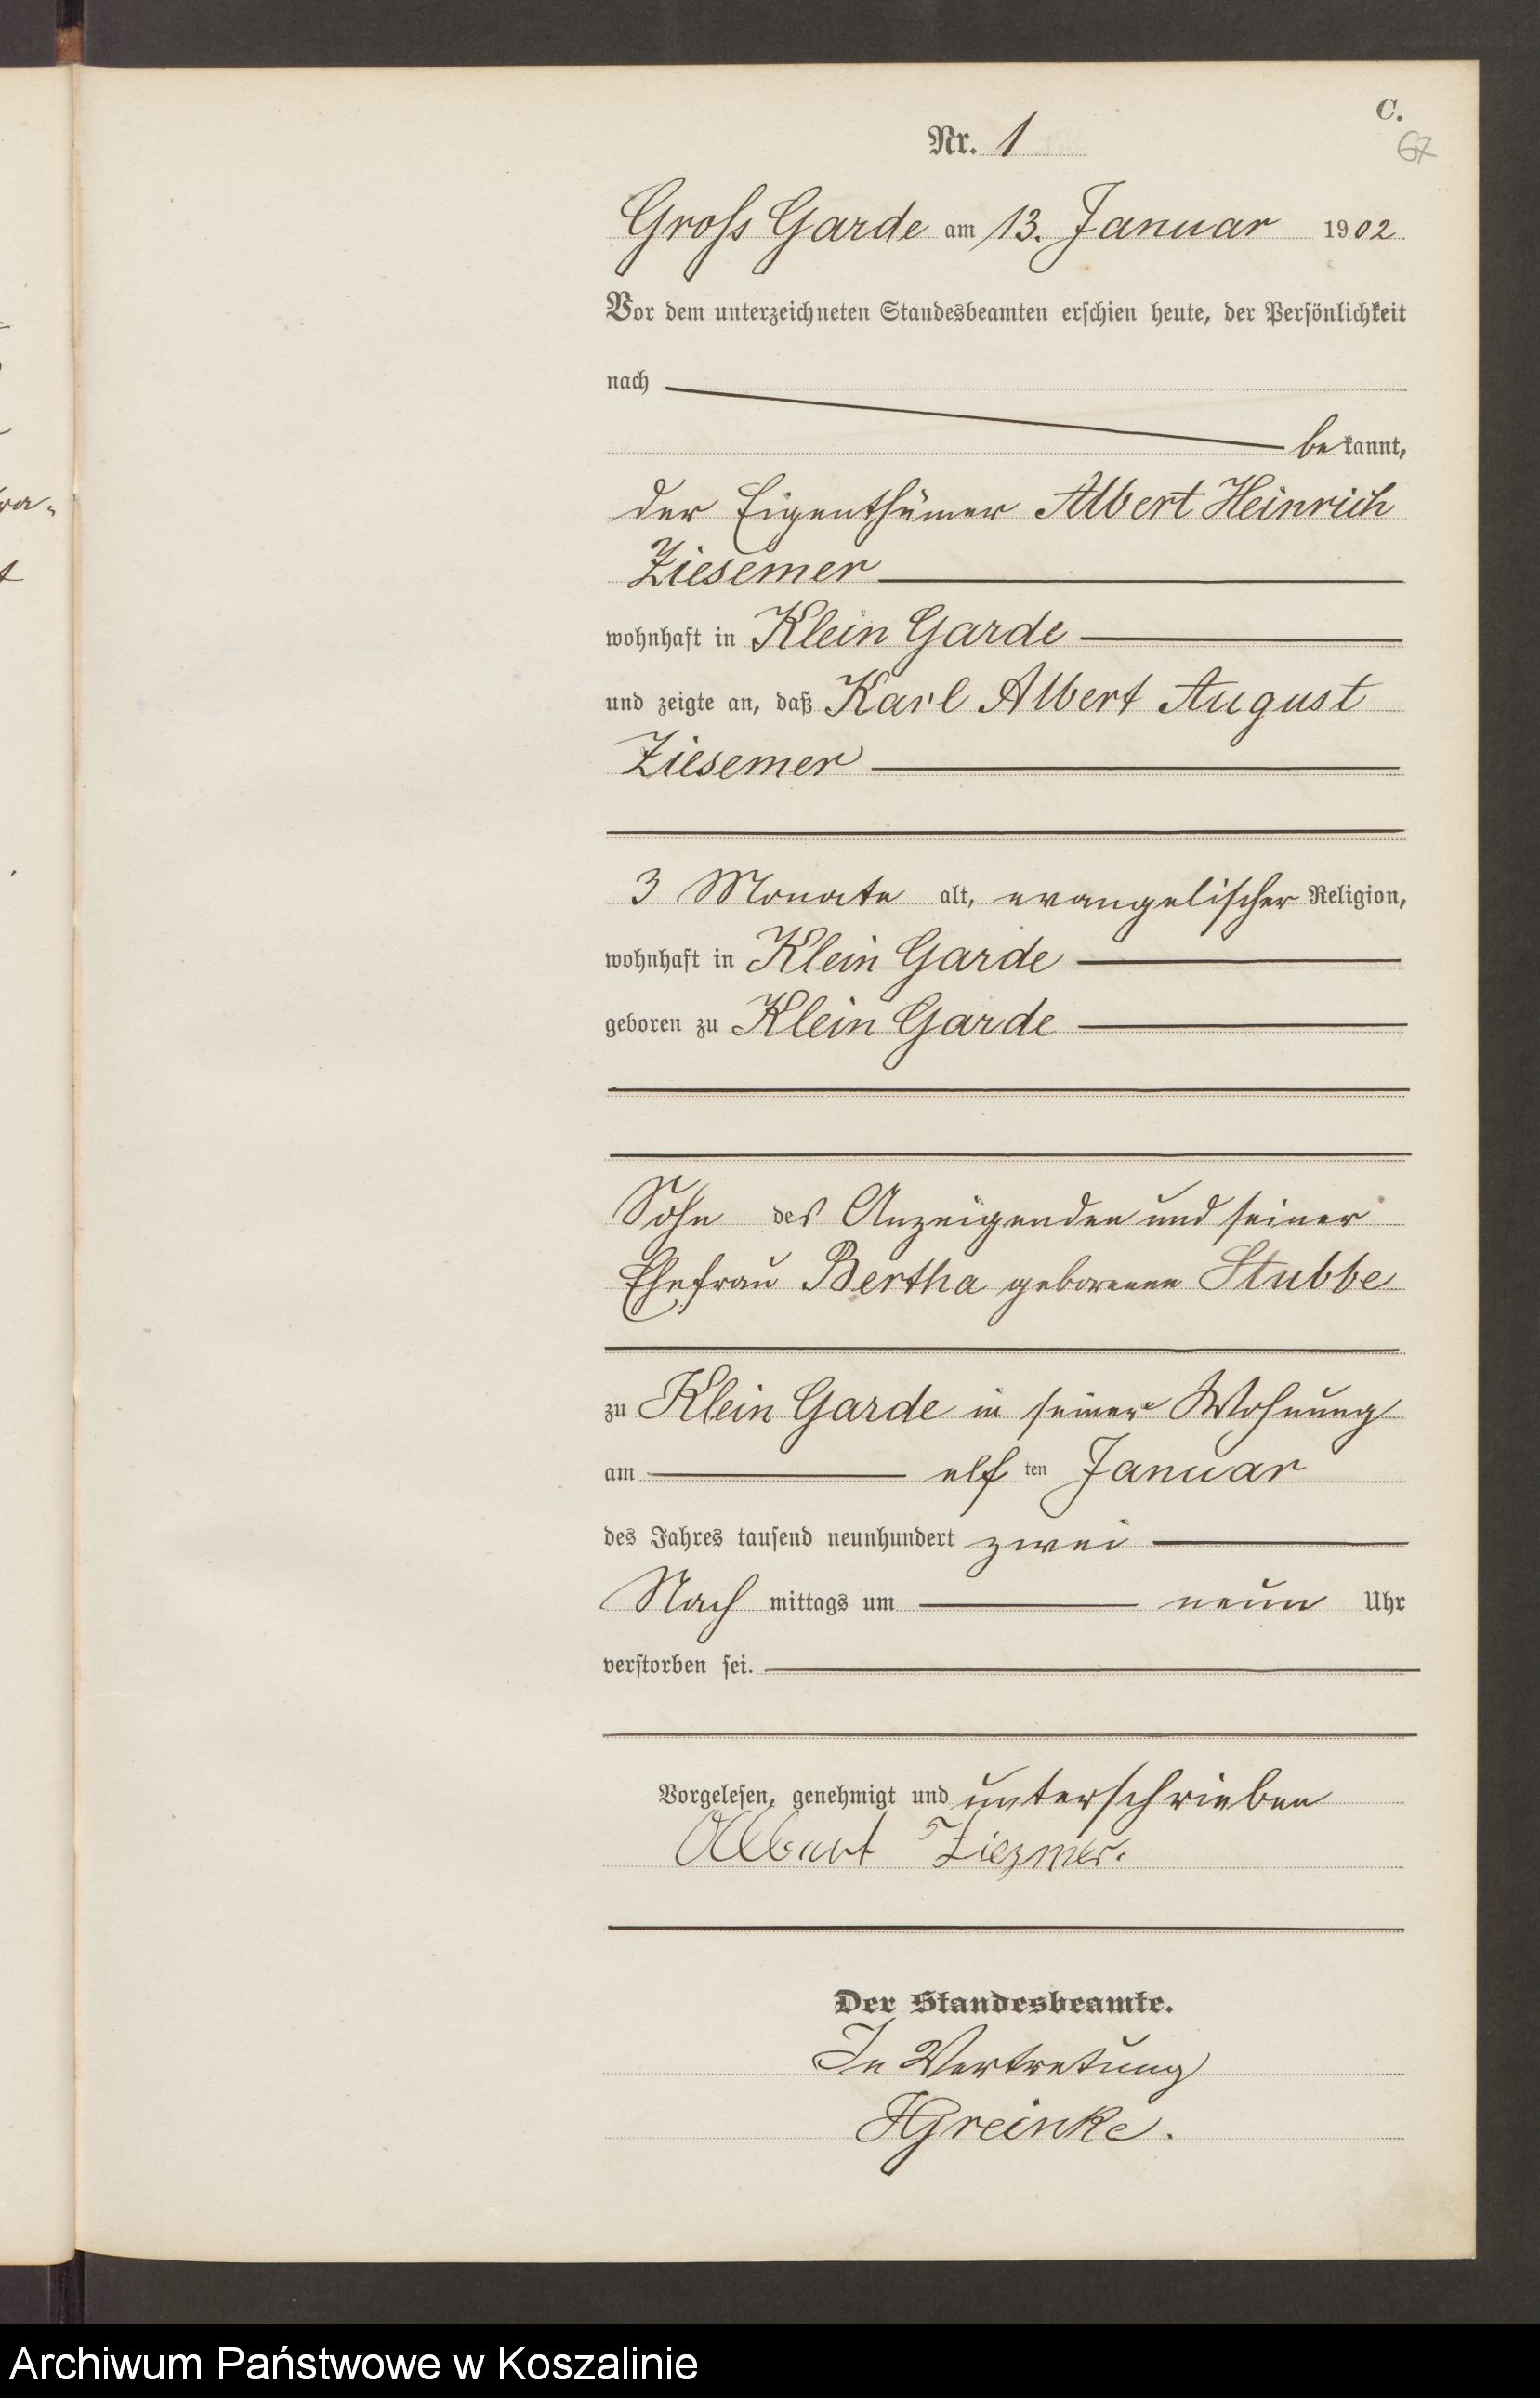 C.
67
Nr. 1
Gross Garde am 13. Januar 1902
Vor dem unterzeichneten Standesbeamten erschien heute, der Persönlichkeit
nach
bekannt,
der Eigenthümer Albert Heinrich
Ziesemer
wohnhaft in Klein Garde
und zeigte an, daß Karl Albert August
Ziesemer
3 Monate alt, evangelischer Religion,
wohnhaft in Klein Garde
geboren zu Klein Garde
Sohn des Anzeigenden und seiner
Ehefrau Bertha geborenen Stubbe
zu Klein Garde in seiner Wohnung
am elf ten Januar
des Jahres tausend neunhundert zwei
Nach mittags um neun Uhr
verstorben sei.
Vorgelesen, genehmigt und unterschrieben
Albert Ziezmer.
Der Standesbeamte.
In Vertretung
HGreinke.
Archiwum Państwowe w Koszalinie